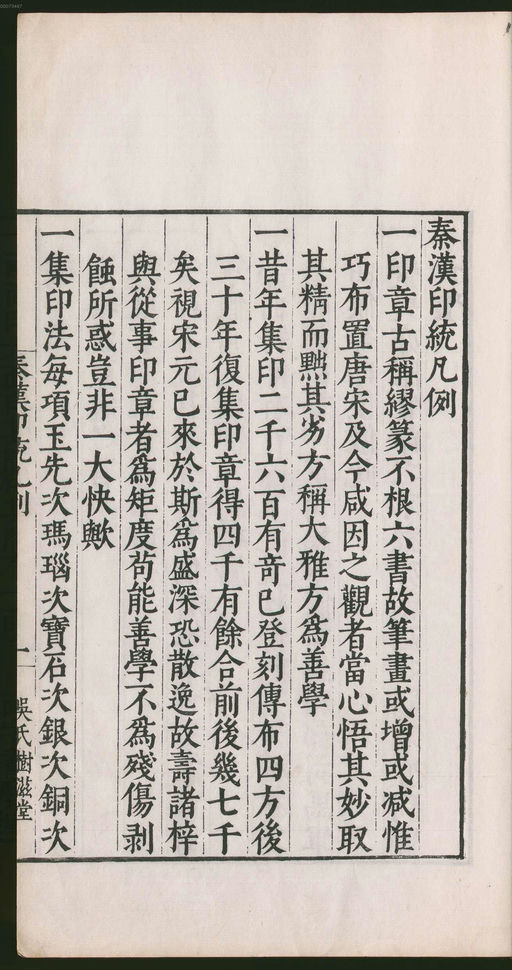 秦漢印統凡例
一印章古稱繆篆不根六書故筆畫或增或减惟
巧布置唐宋及今咸因之觀者當心悟其妙取
其精而黜其劣方稱大雅方爲善學
一昔年集印二千六百有竒已登刻傳布四方後
三十年復集印章得四千有餘合前後幾七千
矣視宋元已來於斯爲盛深恐散逸故壽諸梓
與從事印章者爲矩度苟能善學不爲殘傷剥
蝕所惑豈非一大快歟
一集印法每項玉先次瑪瑙次寶石次銀次銅次
秦漢印統凡例
一
吳氏樹滋堂
00073447